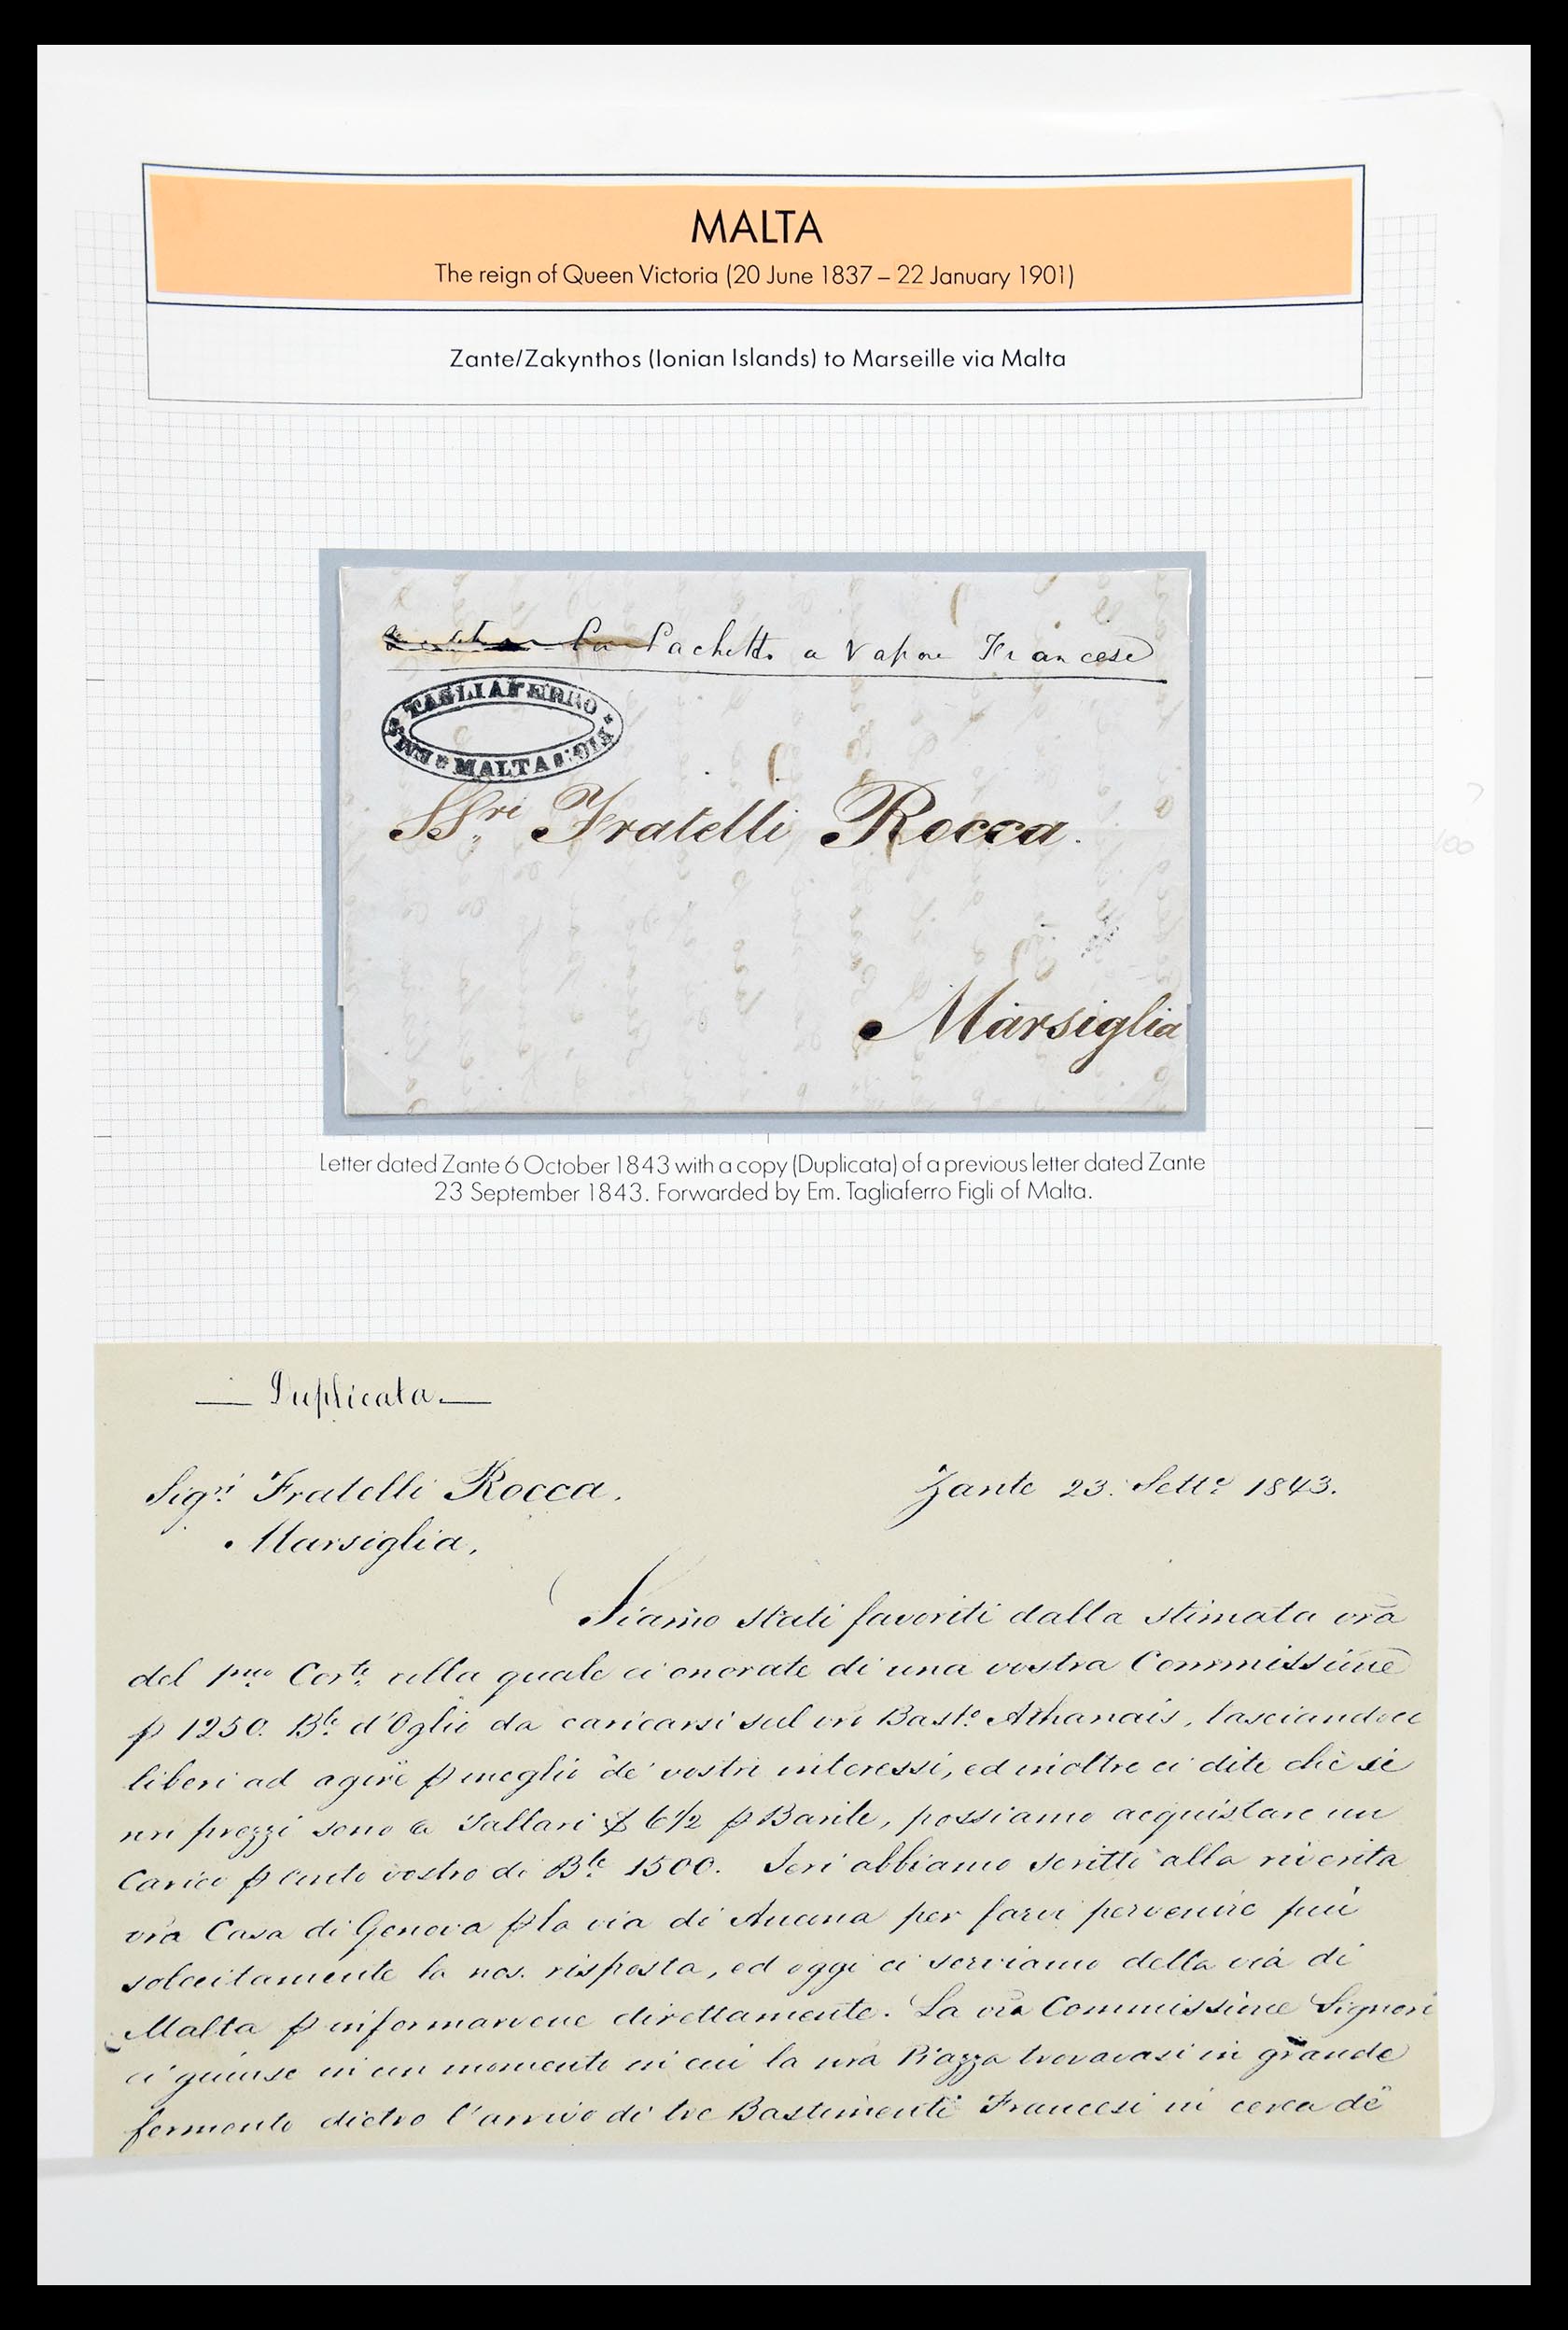 MALTA
The reign of Queen Victoria (20 June 1837 – 22 January 1901)
Zante/Zakynthos (Ionian Islands) to Marseille via Malta
Pachetto a Vapore Francese
TAGLIAFERRO
MALTA
SSri Fratelli Rocca.
Marsiglia
Letter dated Zante 6 October 1843 with a copy (Duplicata) of a previous letter dated Zante
23 September 1843. Forwarded by Em. Tagliaferro Figli of Malta.
— Duplicata —
Sigri Fratelli Rocca. Zante 23. Sette 1843.
Marsiglia,
Siamo stati favoriti dalla stimata vra
del pmo Corte colla quale ci onorate di una vostra Commissione
p 1250. Ble d'Oglio da caricarsi sul vro Basto Athanais, lasciandoci
liberi ad agire p meglio de' vostri interessi, ed inoltre ci dite che se
nri prezzi sono a Tallari 6 1/2 p Barile, possiamo acquistare un
Carico p conto vostro di Ble 1500. Ieri abbiamo scritto alla riverita
vra Casa di Genova p la via di Ancona per farvi pervenire più
solecitamente la nos. risposta, ed oggi ci serviamo della via di
Malta p informarvene direttamente. La vra Commissione Signori
ci giunse in un momento in cui la nra Piazza trovavasi in grande
fermento dietro l'arrivo di tre Bastimenti Francesi in cerca de